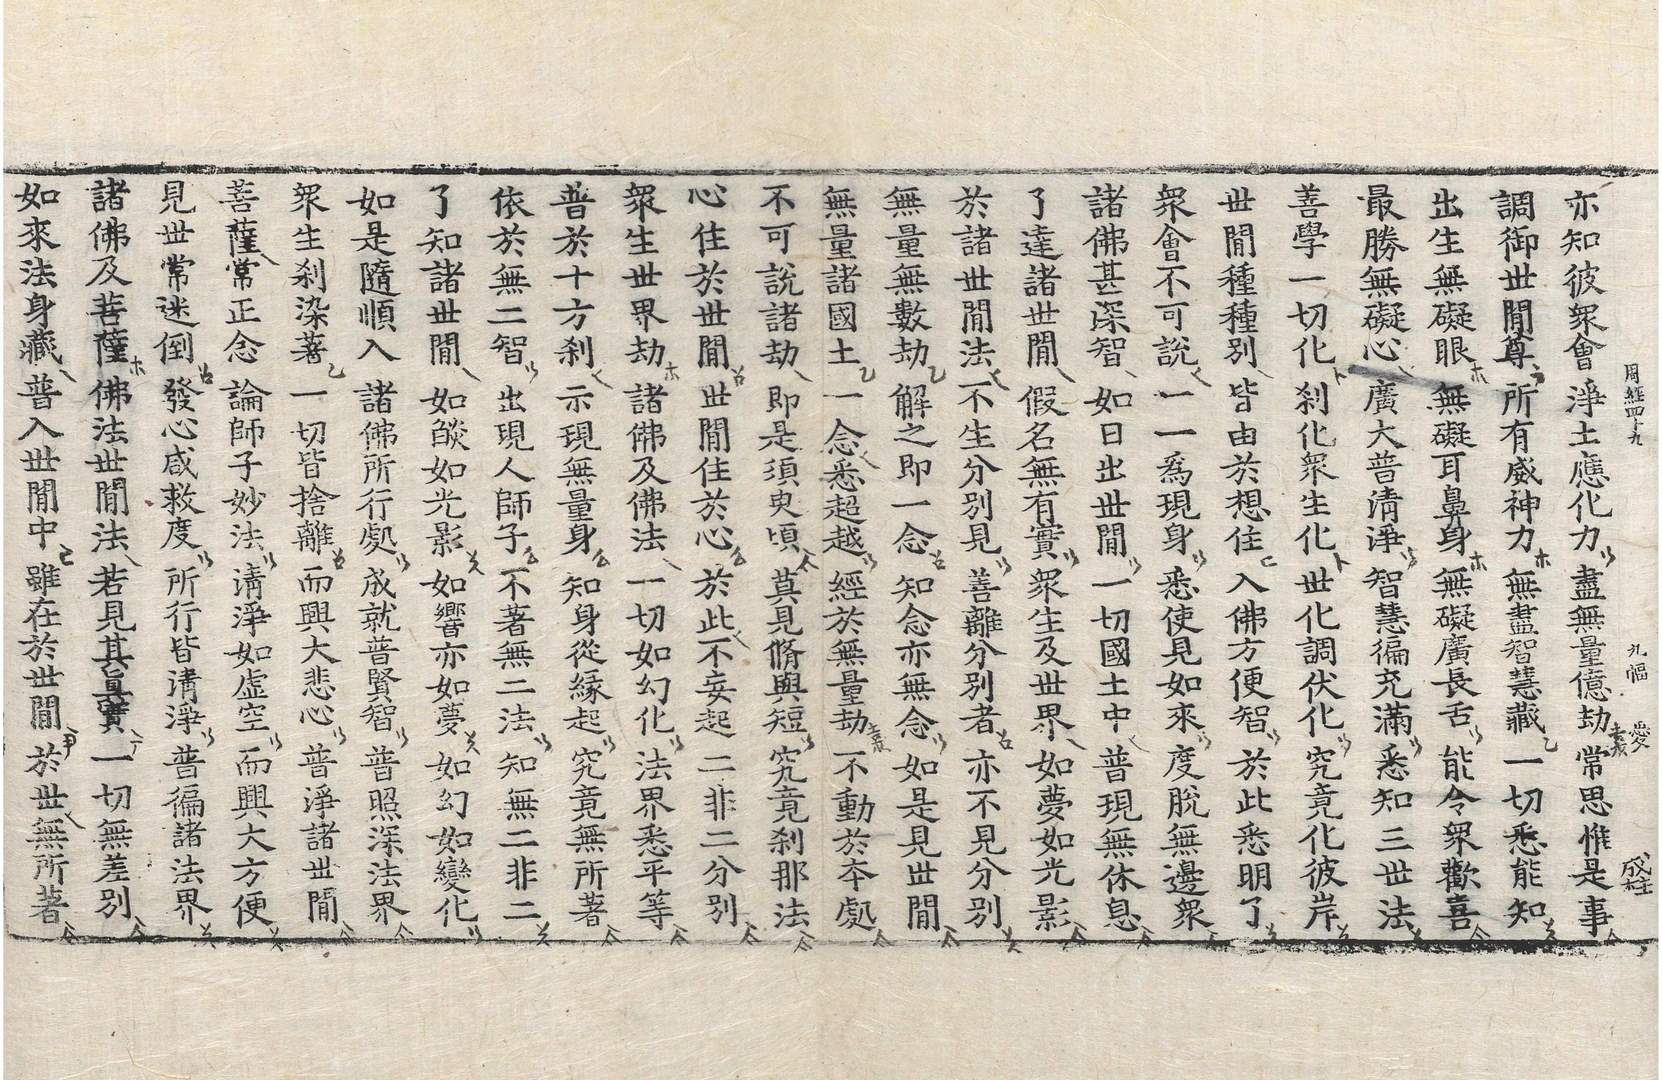 周經四十九　九幅　愛　成柱
亦知彼衆會　淨土應化力　盡無量億劫　常思惟是事
調御世閒尊　所有威神力　無盡智慧藏　一切悉能知
出生無礙眼　無礙耳鼻身　無礙廣長舌　能令衆歡喜
最勝無礙心　廣大普清淨　智慧徧充滿　悉知三世法
善學一切化　刹化衆生化　世化調伏化　究竟化彼岸
世閒種種別　皆由於想住　入佛方便智　於此悉明了
衆會不可說　一一爲現身　悉使見如來　度脫無邊衆
諸佛甚深智　如日出世閒　一切國土中　普現無休息
了達諸世閒　假名無有實　衆生及世界　如夢如光影
於諸世閒法　不生分別見　善離分別者　亦不見分別
無量無數劫　解之即一念　知念亦無念　如是見世閒
無量諸國土　一念悉超越　經於無量劫　不動於本處
不可說諸劫　即是須臾頃　莫見脩與短　究竟刹那法
心住於世閒　世閒住於心　於此不妄起　二非二分別
衆生世界劫　諸佛及佛法　一切如幻化　法界悉平等
普於十方刹　示現無量身　知身從緣起　究竟無所著
依於無二智　出現人師子　不著無二法　知無二非二
了知諸世閒　如燄如光影　如響亦如夢　如幻如變化
如是隨順入　諸佛所行處　成就普賢智　普照深法界
衆生刹染著　一切皆捨離　而興大悲心　普淨諸世閒
菩薩常正念　論師子妙法　清淨如虛空　而興大方便
見世常迷倒　發心咸救度　所行皆清淨　普徧諸法界
諸佛及菩薩　佛法世閒法　若見其眞實　一切無差別
如來法身藏　普入世閒中　雖在於世閒　於世無所著